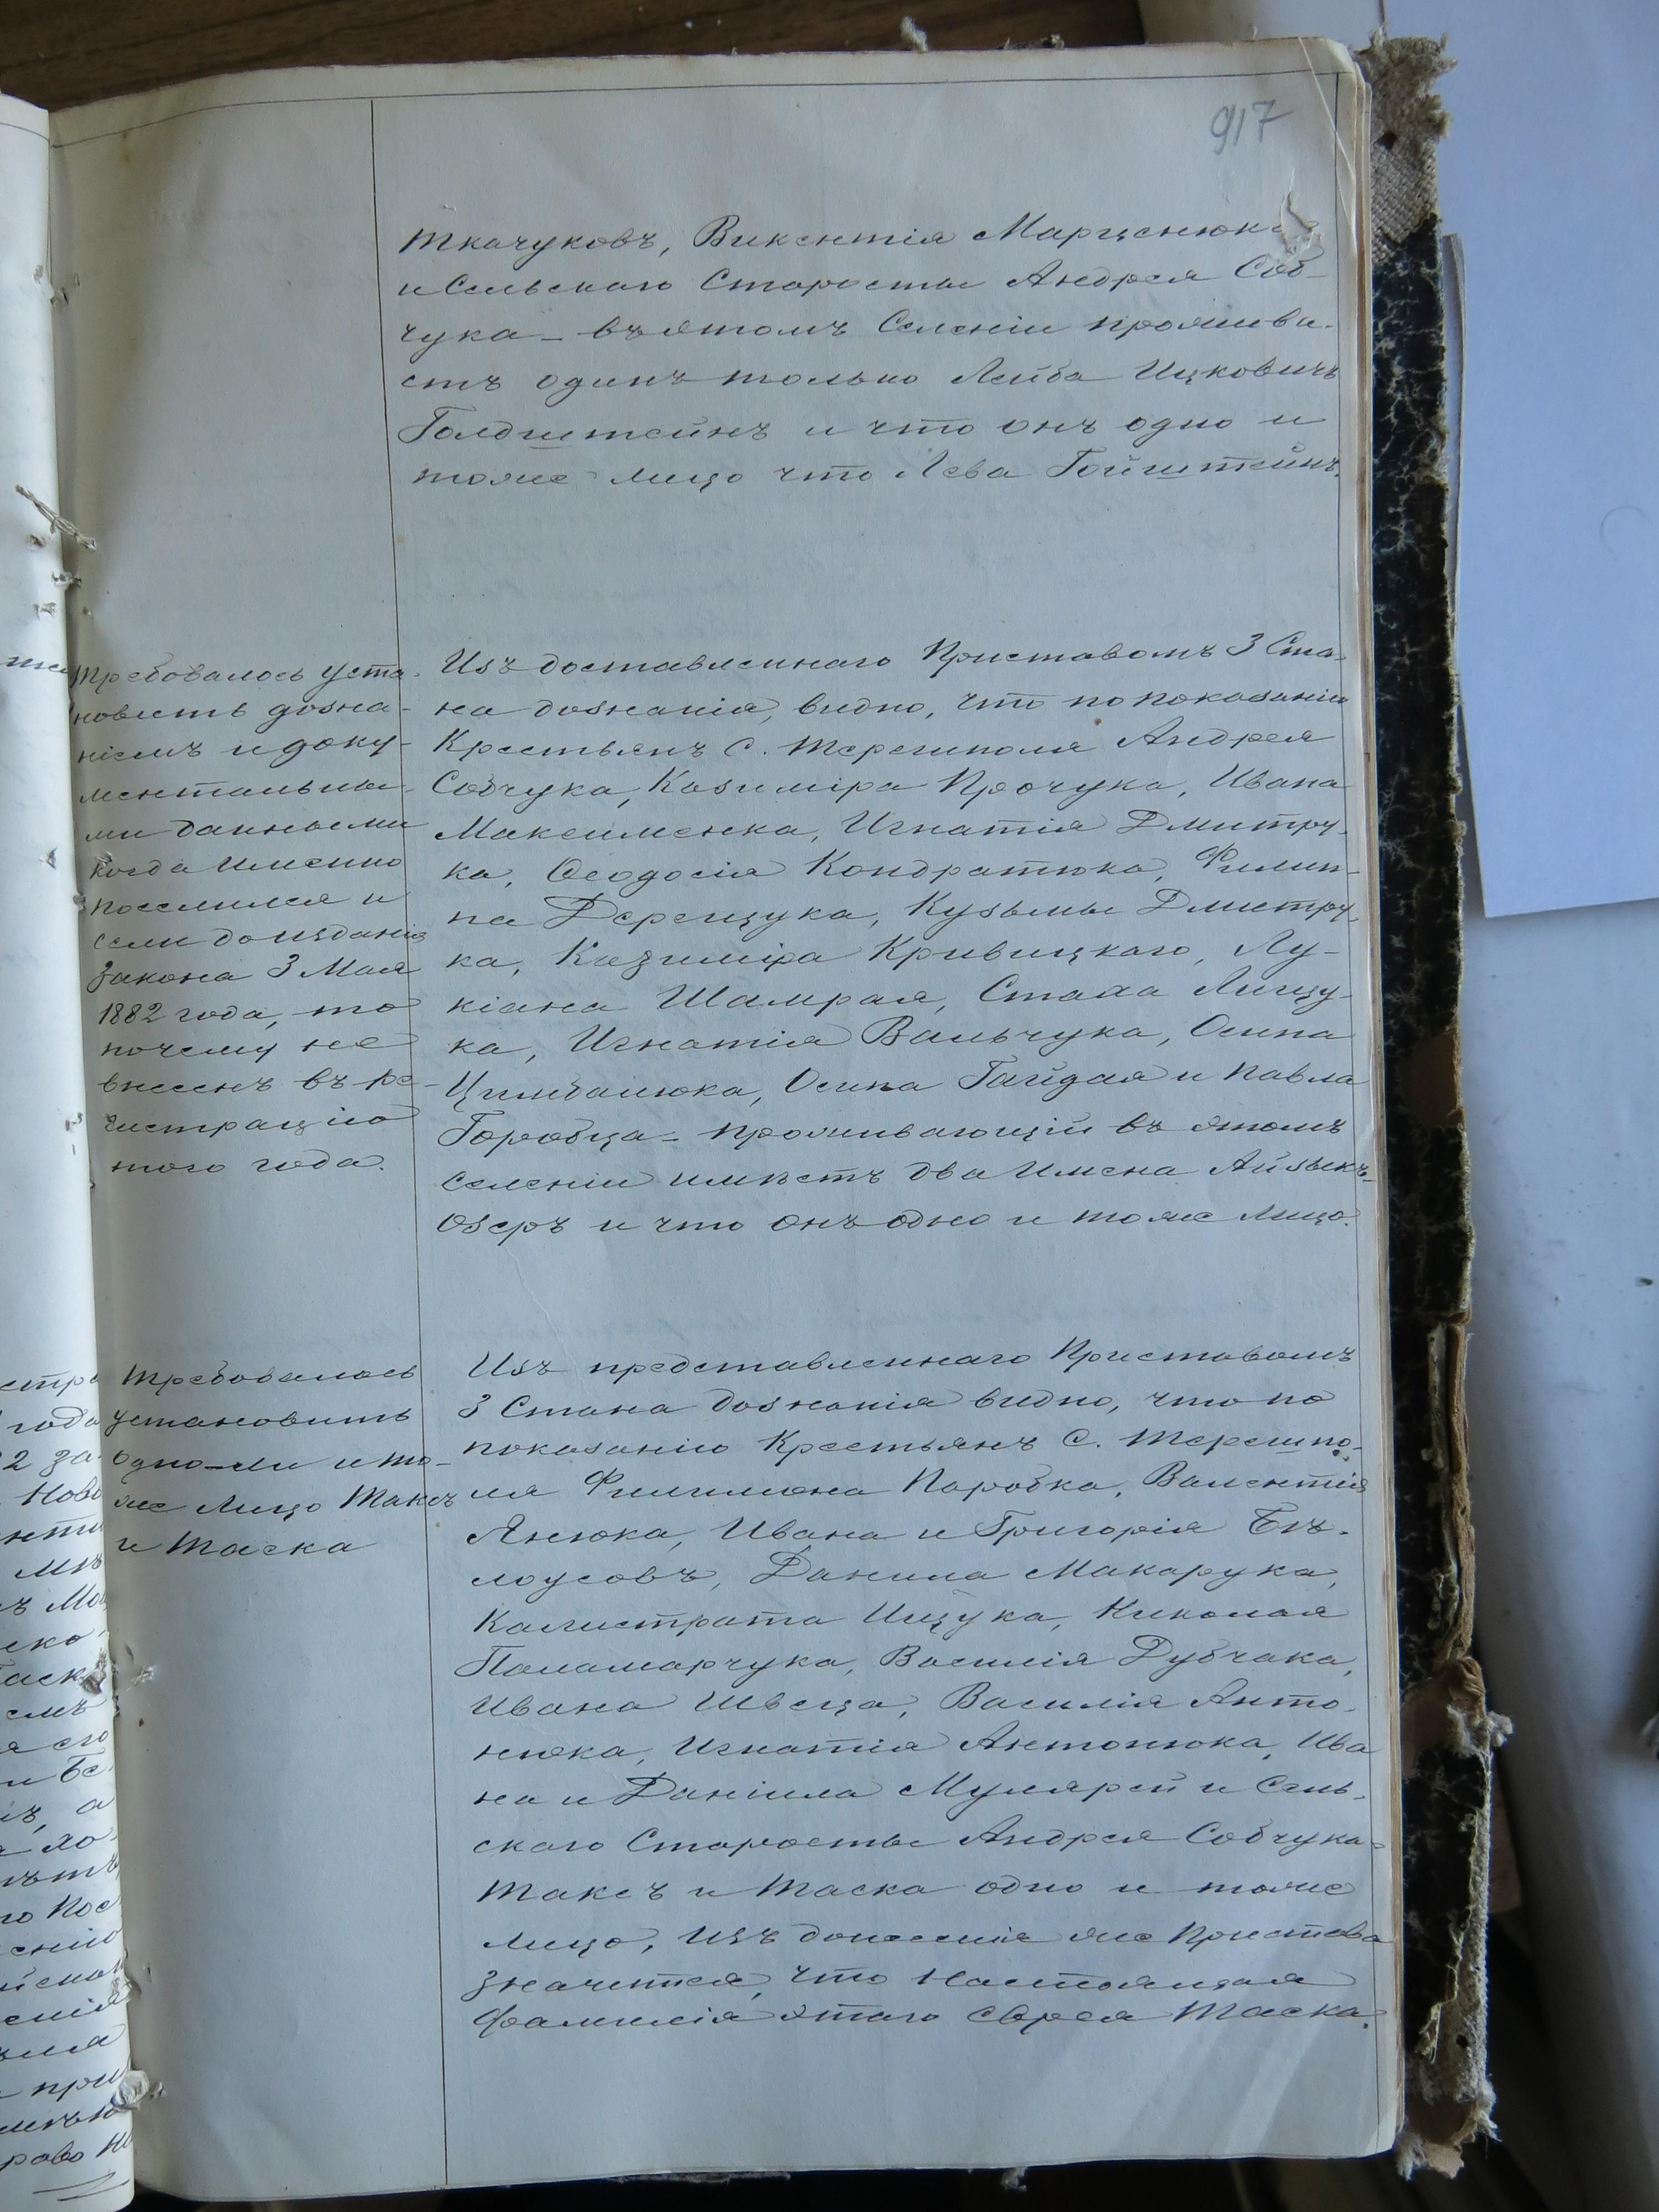 917
Ткачуковъ, Викентія Марценюка
и Сельскаго Старосты Андрея Соб-
чука – въ этомъ Селеніи прожива-
етъ одинъ только Лейба Ицковичъ
Голдштейнъ и что онъ одно и
тоже лицо что Лева Гойхштейнъ.
Требовалось уста-
новить дозна-
ніемъ и доку-
ментальны-
ми данными
когда именно
поселился и
если до изданія
закона 3 Мая
1882 года, то
почему не
внесенъ въ ре-
гистрацію
того года.
Изъ доставленнаго Приставомъ 3 Ста-
на дознанія, видно, что по показанію
Крестьянъ С. Терешполя Андрея
Собчука, Казиміра Прочука, Ивана
Максименка, Игнатія Дмитру-
ка, Ѳеодосія Кондратюка, Филип-
па Деренчука, Кузьмы Дмитру-
ка, Казиміра Кривицкаго, Лу-
кіана Шамрая, Стаха Лищу-
ка, Игнатія Вальчука, Осипа
Цимбалюка, Осипа Гайдая и Павла
Горобца – проживающій въ этомъ
селеніи имѣетъ два имена Айзыкъ-
Озеръ и что онъ одно и тоже лицо.
Требовалось
установить
одно-ли и то-
же лицо Таксъ
и Таска
Изъ представленнаго Приставомъ
3 Стана дознанія видно, что по
показанію Крестьянъ С. Терешпо-
ля Филимона Паробка, Валентія
Янюка, Ивана и Григорія Бѣ-
лоусовъ, Данила Макарука,
Калистрата Ищука, Николая
Паламарчука, Василія Дубчака,
Ивана Швеца, Василія Анто-
нюка, Игнатія Антонюка, Ива
на и Даніила Мулярей и Сель-
скаго Старосты Андрея Собчука –
Таксъ и Таска одно и тоже
лицо, изъ донесенія же Пристава
значится, что настоящая
фамилія этаго еврея Таска.